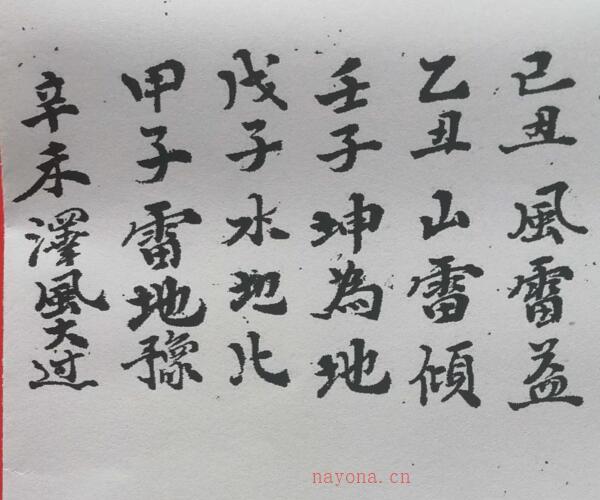 己丑 風雷益
乙丑 山雷傾
壬子 坤為地
戊子 水地比
甲子 雷地豫
辛未 澤風大过
nayona.cn